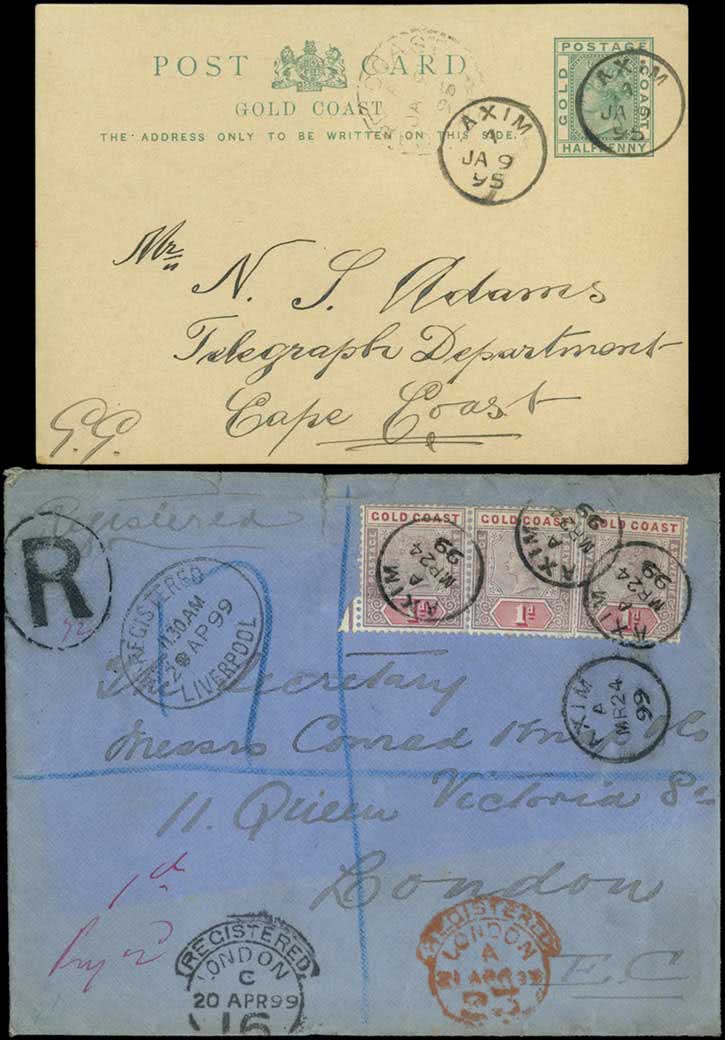 POST CARD
GOLD COAST
THE ADDRESS ONLY TO BE WRITTEN ON THIS SIDE.
POSTAGE
GOLD COAST
HALFPENNY
AXIM
A
JA 9
95
AXIM
A
JA
95
Mr. N. S. Adams
Telegraph Department
Cape Coast
G.G.
Registered
R
REGISTERED
11.30AM
20 AP 99
LIVERPOOL
GOLD COAST
GOLD COAST
GOLD COAST
1d
AXIM
A
MR 24
99
AXIM
A
MR 24
99
AXIM
A
MR 24
99
AXIM
A
MR 24
99
The Secretary
Messrs Conrad
11. Queen Victoria St
London
E.C
1d
REGISTERED
LONDON
C
20 APR 99
16
REGISTERED
LONDON
A